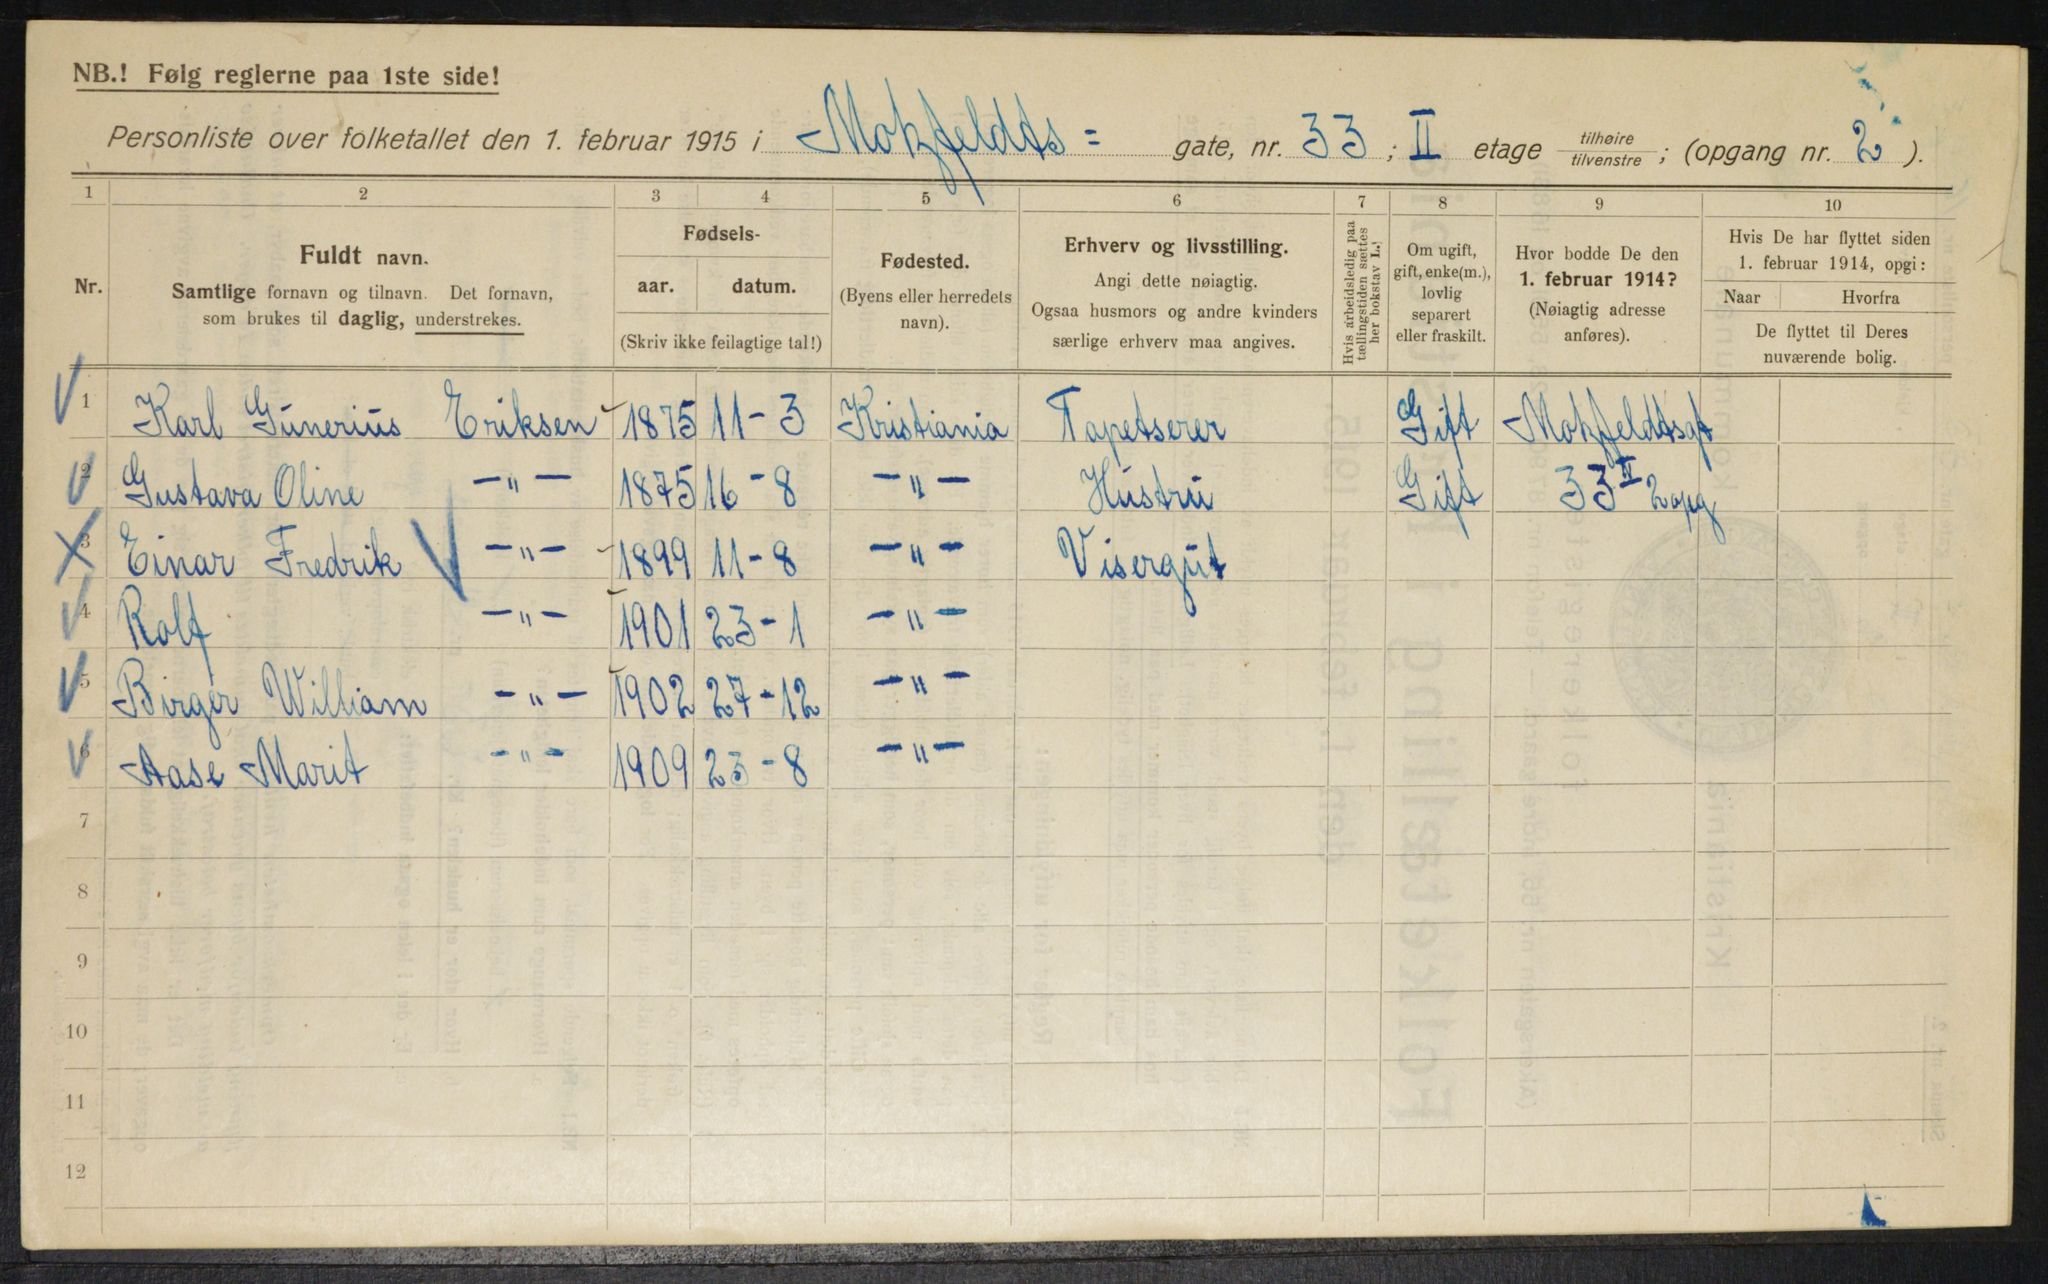 NB.! Følg reglerne paa 1ste side!
Personliste over folketallet den 1. februar 1915 i Motzfeldts= gate, nr. 33 ; II etage tilhøire tilvenstre ; (opgang nr. 2 ).
1 2 3 4 5 6 7 8 9 10
Nr.
Fuldt navn.
Samtlige fornavn og tilnavn. Det fornavn,
som brukes til daglig, understrekes.
Fødsels-
aar. datum.
(Skriv ikke feilagtige tal!)
Fødested.
(Byens eller herredets
navn).
Erhverv og livsstilling.
Angi dette nøiagtig.
Ogsaa husmors og andre kvinders
særlige erhverv maa angives.
Hvis arbeidsledig paa
tællingstiden sættes
her bokstav L.!
Om ugift,
gift, enke(m.),
lovlig
separert
eller fraskilt.
Hvor bodde De den
1. februar 1914?
(Nøiagtig adresse
anføres).
Hvis De har flyttet siden
1. februar 1914, opgi:
Naar Hvorfra
De flyttet til Deres
nuværende bolig.
1 Karl Gunerius Eriksen 1875 11-3 Kristiania Tapetserer Gift Motzfeldtsgt
2 Gustava Oline —"— 1875 16-8 —"— Hustru Gift 33 II 2 opg
3 Einar Fredrik —"— 1899 11-8 —"— Visergut
4 Rolf —"— 1901 23-1 —"—
5 Birger William —"— 1902 27-12 —"—
6 Aase Marit —"— 1909 23-8 —"—
7
8
9
10
11
12